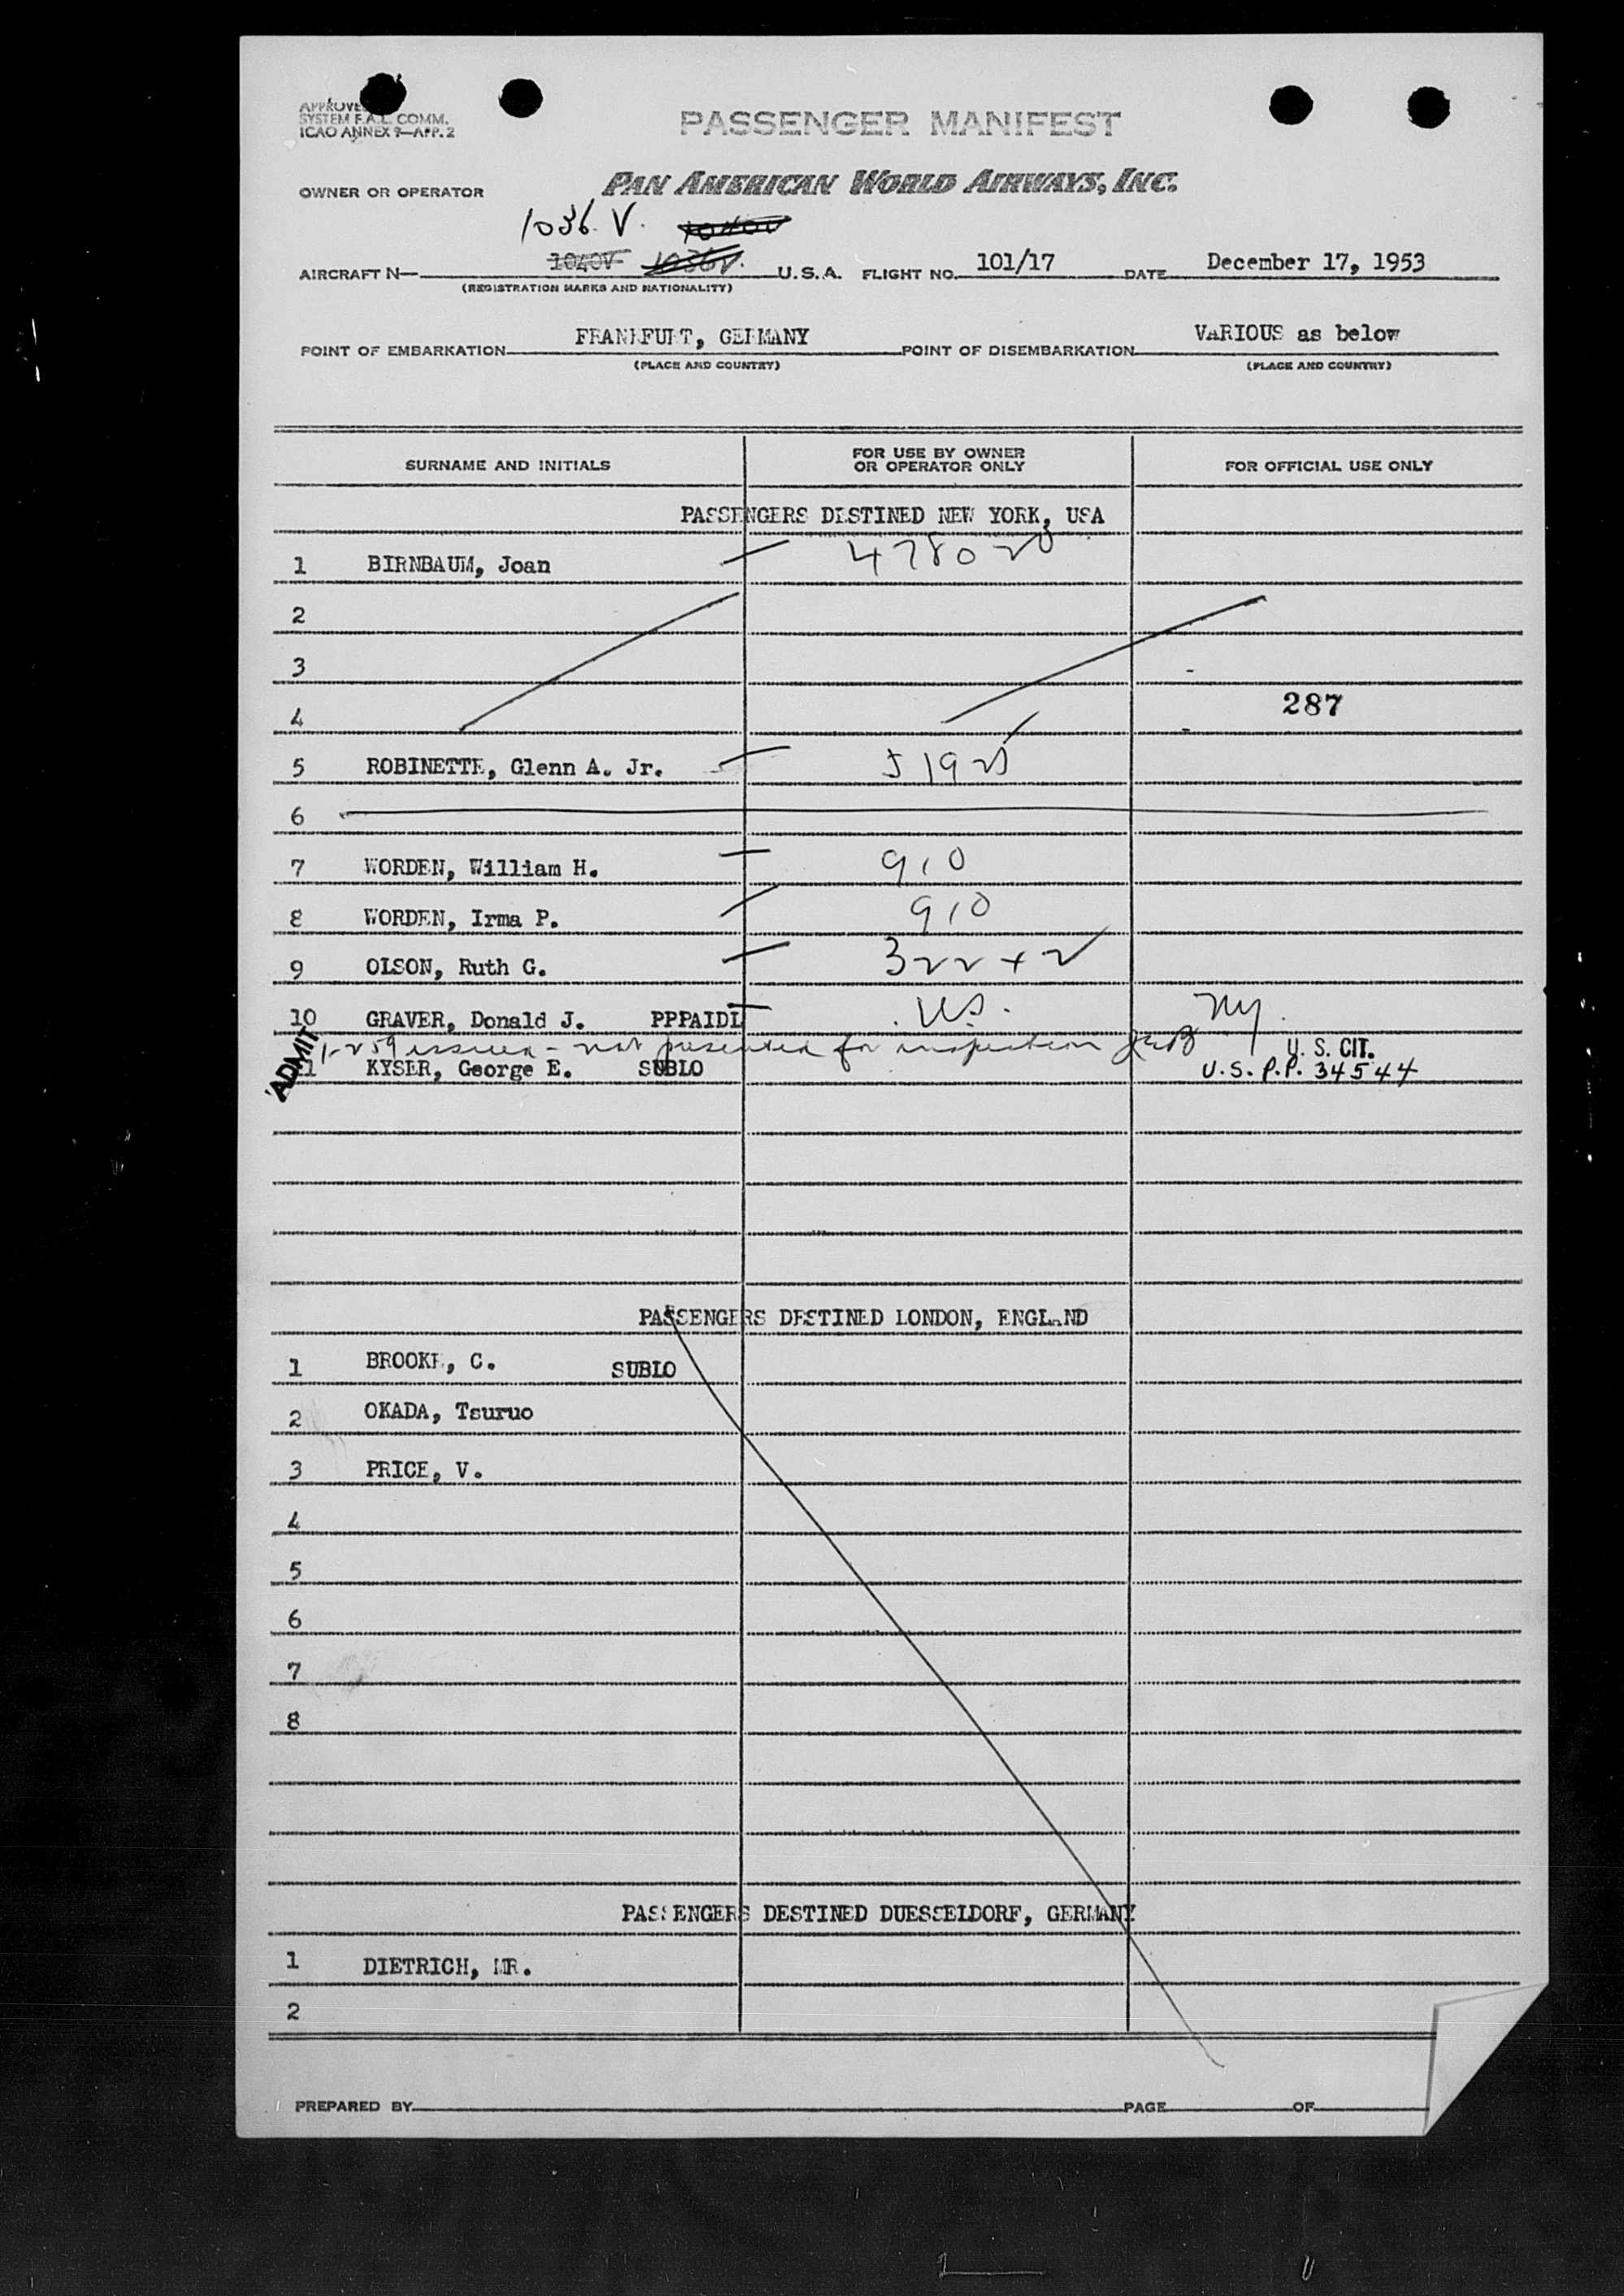 APPROVED
SYSTEM F.A.L. COMM.
ICAO ANNEX 9—APP. 2
PASSENGER MANIFEST
OWNER OR OPERATOR PAN AMERICAN WORLD AIRWAYS, INC.
1036 V.
AIRCRAFT N— 1040V 1036V. U.S.A. FLIGHT NO. 101/17 DATE December 17, 1953
(REGISTRATION MARKS AND NATIONALITY)
POINT OF EMBARKATION FRANKFURT, GERMANY POINT OF DISEMBARKATION VARIOUS as below
(PLACE AND COUNTRY) (PLACE AND COUNTRY)
SURNAME AND INITIALS FOR USE BY OWNER OR OPERATOR ONLY FOR OFFICIAL USE ONLY
PASSENGERS DESTINED NEW YORK, USA
1 BIRNBAUM, Joan 4780
2
3
4 287
5 ROBINETTE, Glenn A. Jr. 519
6
7 WORDEN, William H. 910
8 WORDEN, Irma P. 910
9 OLSON, Ruth G. 322+2
10 GRAVER, Donald J. PPPAIDL U.S. NY.
ADMIT I-259 issued - not presented for inspection
11 KYSER, George E. SUBLO U. S. CIT.
U.S. P.P. 34544
PASSENGERS DESTINED LONDON, ENGLAND
1 BROOKE, C. SUBLO
2 OKADA, Tsuruo
3 PRICE, V.
4
5
6
7
8
PASSENGERS DESTINED DUESSELDORF, GERMANY
1 DIETRICH, MR.
2
PREPARED BY PAGE OF